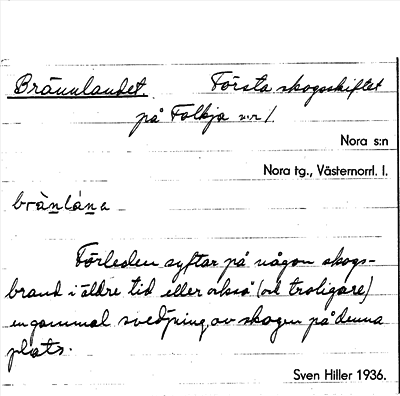 Brännlandet. Första skogsskiftet
på Folkja n:r 1.
Nora s:n
Nora tg., Västernorrl. l.
brä̀nlá̀na
Förleden syftar på någon skogs-
brand i äldre tid eller också (och troligare)
en gammal svedjning av skogen på denna
plats.
Sven Hiller 1936.